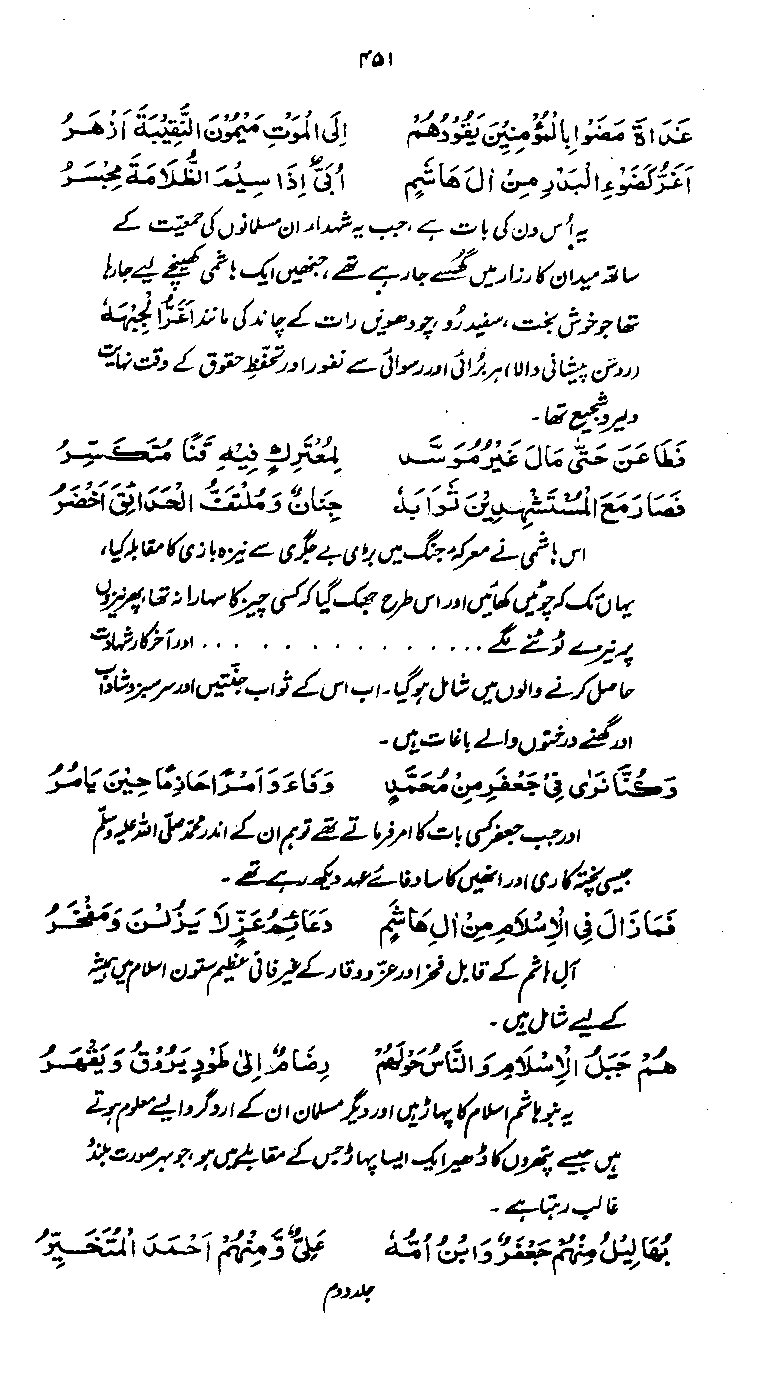 ۴۵۱
غَدَاةَ مَضَوْا بِالْمُؤْمِنِيْنَ يَقُوْدُهُمْ اِلَى الْمَوْتِ مَيْمُوْنَ النَّقِيْبَةِ اَزْهَرُ
اَغَرُّ كَضَوْءِ الْبَدْرِ مِنْ اٰلِ هَاشِمٍ اُبَيٌّ اِذَا سِيْمَ الظُّلَامَةَ مِجْسَرُ
یہ اُس دن کی بات ہے، جب یہ شہداء ان مسلمانوں کی جمعیت کے
ساتھ میدان کارزار میں گھسے جا رہے تھے، جنھیں ایک ہاشمی کھینچے لیے جا رہا
تھا جو خوش بخت، سفید رُو، چودھویں رات کے چاند کی مانند اَغَرُّ الْجَبْهَة
(روشن پیشانی والا) ہر بُرائی اور رسوائی سے نفور اور تحفظِ حقوق کے وقت نہایت
دلیر و شجیع تھا۔
فَطَاعَنَ حَتّٰى مَالَ غَيْرُ مُوَسَّدٍ لِمُعْتَرَكٍ فِيْهِ قَنًا مُتَكَسِّرُ
فَصَارَ مَعَ الْمُسْتَشْهِدِيْنَ ثَوَابُهٗ جِنَانٌ وَمُلْتَفُّ الْحَدَائِقِ اَخْضَرُ
اس ہاشمی نے معرکۂ جنگ میں بڑی بے جگری سے نیزہ بازی کا مقابلہ کیا،
یہاں تک کہ چوٹیں کھائیں اور اس طرح جھک گیا کہ کسی چیز کا سہارا نہ تھا، پھر نیزوں
پر نیزے ٹوٹنے لگے . . . . . . . . . . . . . . اور آخر کار شہادت
حاصل کرنے والوں میں شامل ہو گیا۔ اب اس کے ثواب جنّتیں اور سرسبز و شاداب
اور گھنے درختوں والے باغات ہیں۔
وَكُنَّا نَرٰى فِيْ جَعْفَرٍ مِنْ مُحَمَّدٍ وَفَاءً وَاَمْرًا حَازِمًا حِيْنَ يَامُرُ
اور جب جعفر کسی بات کا امر فرماتے تھے تو ہم ان کے اندر محمد صلّی اللہ علیہ وسلّم
جیسی پختہ کاری اور انھیں کا سا وفائے عہد دیکھ رہے تھے۔
فَمَا زَالَ فِي الْاِسْلَامِ مِنْ اٰلِ هَاشِمٍ دَعَائِمُ عَزٍّ لَا يَزُلْنَ وَمَفْخَرُ
آلِ ہاشم کے قابل فخر اور عزّ و وقار کے غیر فانی عظیم ستون اسلام میں ہمیشہ
کے لیے شامل ہیں۔
هُمْ جَبَلُ الْاِسْلَامِ وَالنَّاسُ حَوْلَهُمْ رِضَامٌ اِلٰى طَوْدٍ يَرُوْقُ وَيَقْهَرُ
یہ بنو ہاشم اسلام کا پہاڑ ہیں اور دیگر مسلمان ان کے ارد گرد ایسے معلوم ہوتے
ہیں جیسے پتھروں کا ڈھیر ایک ایسا پہاڑ جس کے مقابلے میں ہو، جو بہر صورت بلند
غالب رہتا ہے۔
بُهَالِيْلُ مِنْهُمْ جَعْفَرٌ وَابْنُ اُمِّهٖ عَلِيٌّ وَّمِنْهُمْ اَحْمَدُ الْمُتَخَيَّرُ
جلد دوم